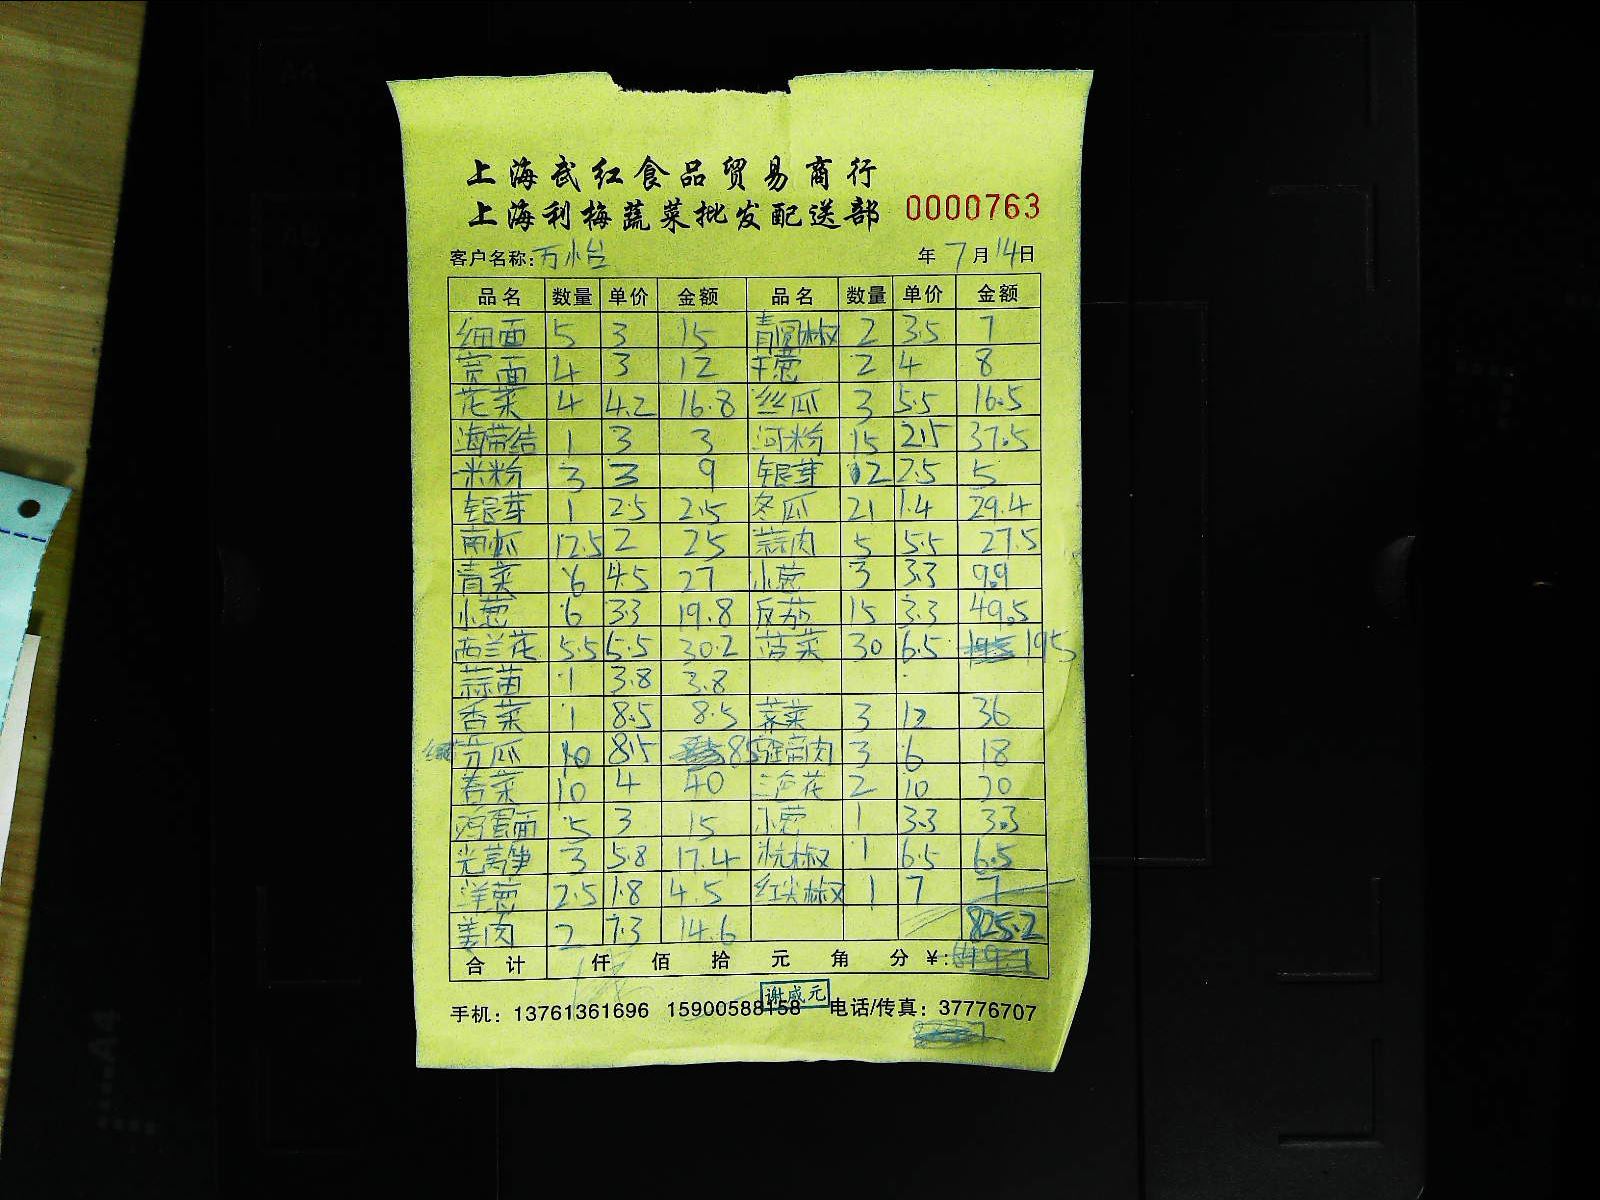 上海武红食品贸易商行
上海利梅蔬菜批发配送部 0000763
客户名称:万怡 年7月14日
品名 数量 单价 金额 品名 数量 单价 金额
细面 5 3 15 青圆椒 2 3.5 7
宽面 4 3 12 干葱 2 4 8
花菜 4 4.2 16.8 丝瓜 3 5.5 16.5
海带结 1 3 3 河粉 15 2.5 37.5
米粉 3 3 9 银芽 2 2.5 5
银芽 1 2.5 2.5 冬瓜 21 1.4 29.4
南瓜 12.5 2 25 蒜肉 5 5.5 27.5
青菜 6 4.5 27 小葱 3 3.3 9.9
小葱 6 3.3 19.8 反茄 15 3.3 49.5
西兰花 5.5 5.5 30.2 菠菜 30 6.5 195
蒜苗 1 3.8 3.8
香菜 1 8.5 8.5 荠菜 3 12 36
瓜 10 8.5 85 肉 3 6 18
春菜 10 4 40 花 2 10 20
鸡蛋面 5 3 15 小葱 1 3.3 3.3
光莴笋 3 5.8 17.4 杭椒 1 6.5 6.5
洋葱 2.5 1.8 4.5 红尖椒 1 7 7
姜肉 2 7.3 14.6 825.2
合计 仟 佰 拾 元 角 分 ¥:
谢咸元
手机：13761361696 15900588158 电话/传真：37776707